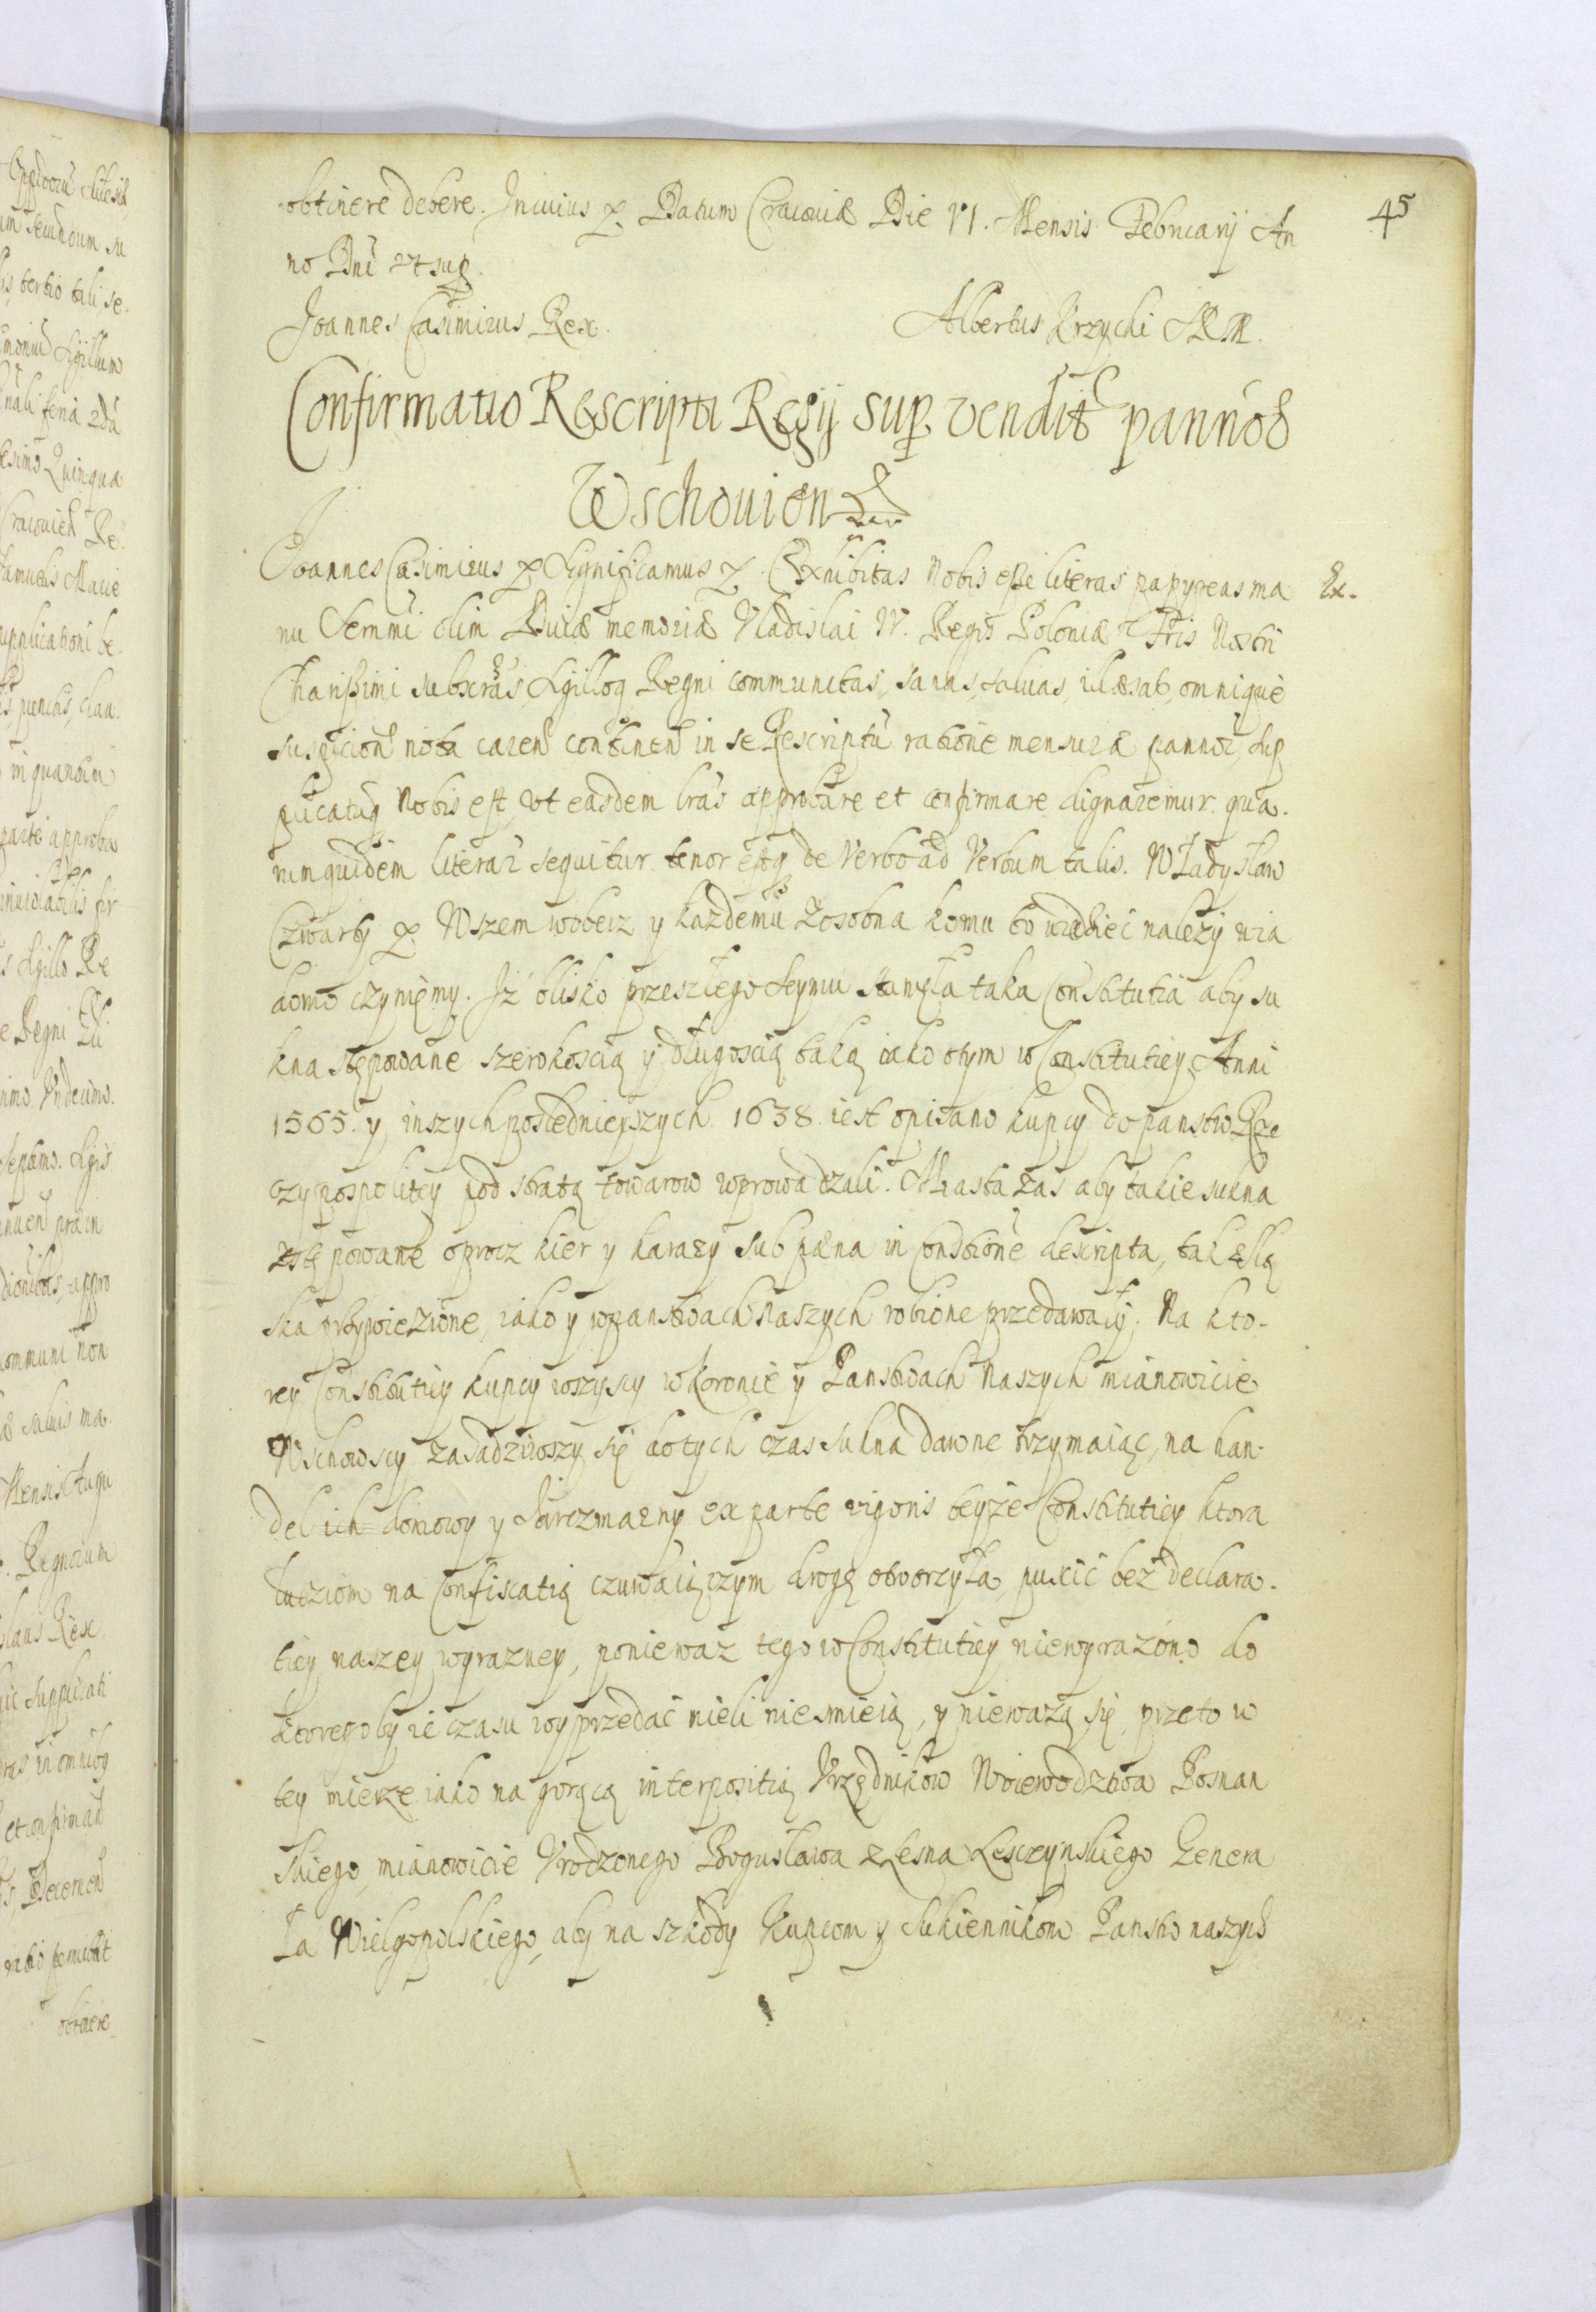 45
obtinere debere. Incuius p. Datum Cracoviæ Die VI. Mensis Februarij An
no Dni ut sup.
Joannes Casimirus Rex. Albertus Krzycki
Confirmatio Rescripti Regij sup. vendit pannor
Wschouien
Joannes Casimirus p. Significamus Exhibitas Nobis esse literas papyreas ma Ex.
nu Sermi olim Divæ memoriæ Vladislai IV. Regis Poloniæ Fris Nostri
Charissimi subscras, Sigilloq Regni communitas, sanas, saluas, illæsas, omnique
suspicion nota caren continen in se Rescriptū ratione mensuræ pannor, sup
plicatuq Nobis est, vt easdem lras approbare et confirmare dignaremur. qua.
rumquidem literar sequitur tenor estq de Verbo ad Verbum talis. Władysław
Czwarty p. Wszem wobecz y kazdemu Zosobna komu to wiedziec nalezy wia
domo czyniemy. Iż blisko przeszłego Seymu stanęła taka Constitutia aby su
kna stępowane szerokoscią y długoscią taką iako otym w Constitutiey Anni
1565. y inszych poslednieyszych 1638. iest opisano kupcy do panstw Rze
czypospolitey pod stratą towarow wprowadzali. Miasta zas aby takie sukna
stępowane oprocz kier y karazy sub pæna in Constione descripta, tak Slą
ska przywiezione, iako y wpanstwach Naszych robione przedawały. Na kto-
rey Constitutiey kupcy wszyscy w Koronie y Panstwach Naszych mianowicie
Wschowscy zasadziwszy się do tych czas sukna dawne trzymaiąc, na han-
del ich domowy y Jarczmarny ex parte rigoris teyze Constitutiey ktora
ludziom na Confiscatią czuwaiączym drogę otworzyła, puscic bez declara-
tiey naszey wyrazney, poniewaz tego w Constitutiey niewyrazono do
ktoregoby ie czasu wyprzedać mieli niesmieią, y nieważą się, przeto w
tey mierze iako na gorącą interpositią Vrzędnikow Woiewodztwa Posnan
skiego, mianowicie Vrodzonego Bogusława z Lesna Lesczynskiego Genera
ła Wielgopolskiego, aby na szkody Kupcom y Sukiennikom Panstw naszych